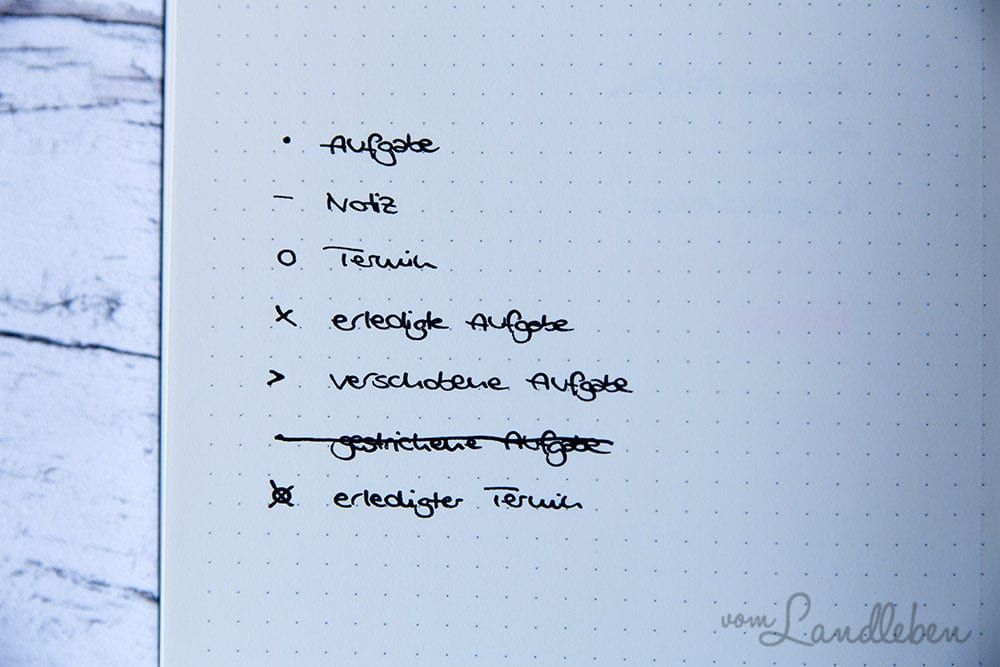 • Aufgabe
– Notiz
O Termin
x erledigte Aufgabe
> verschobene Aufgabe
gestrichene Aufgabe
⊗ erledigter Termin
vom Landleben